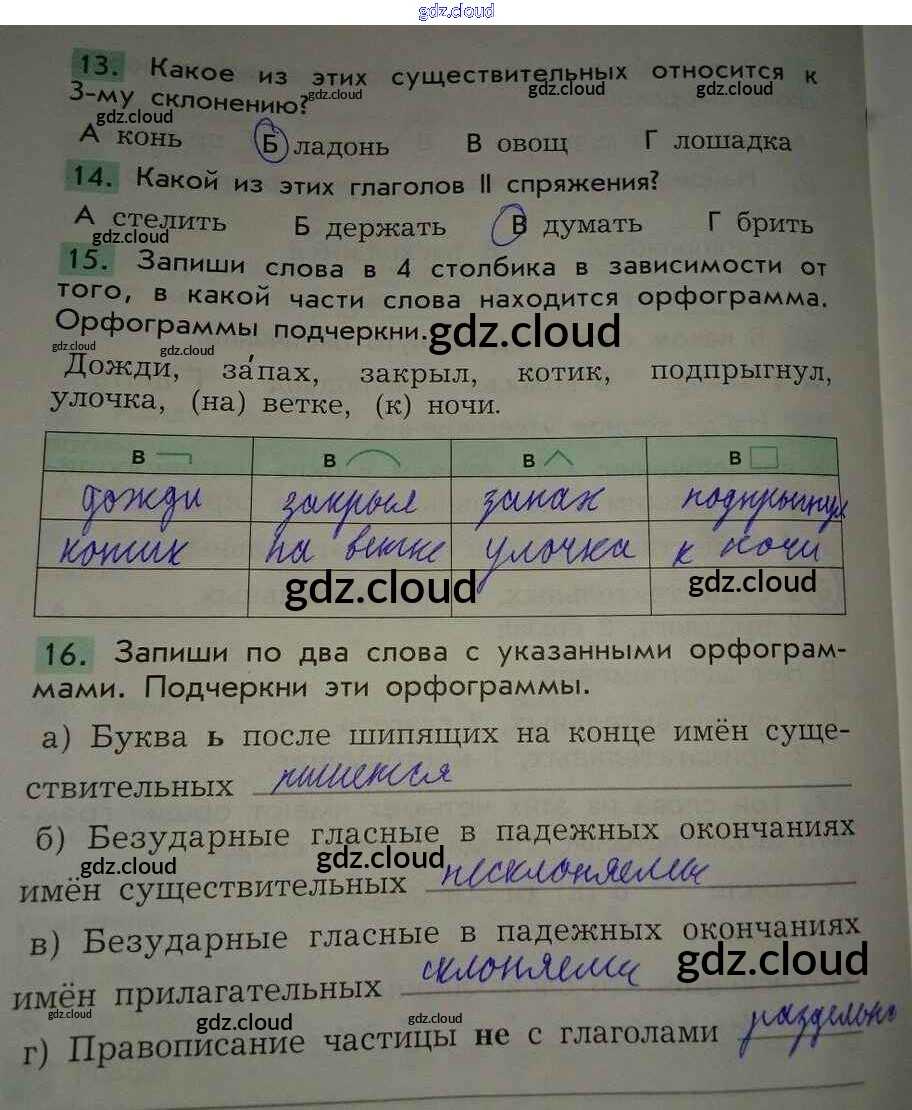 gdz.cloud
13. Какое из этих существительных относится к
3-му склонению?
gdz.cloud
gdz.cloud
gdz.cloud
gdz.cloud
А конь Б ладонь В овощ Г лошадка
14. Какой из этих глаголов II спряжения?
А стелить Б держать В думать Г брить
gdz.cloud
15. Запиши слова в 4 столбика в зависимости от
того, в какой части слова находится орфограмма.
Орфограммы подчеркни.
gdz.cloud
gdz.cloud
gdz.cloud
Дожди, за́пах, закрыл, котик, подпрыгнул,
улочка, (на) ветке, (к) ночи.
в в в в
дожди закрыл запах подпрыгнул
котик на ветке улочка к ночи
gdz.cloud
gdz.cloud
16. Запиши по два слова с указанными орфограм-
мами. Подчеркни эти орфограммы.
а) Буква ь после шипящих на конце имён суще-
ствительных пишется
б) Безударные гласные в падежных окончаниях
gdz.cloud
gdz.cloud
имён существительных несклоняемы
в) Безударные гласные в падежных окончаниях
имён прилагательных склоняеми
gdz.cloud
gdz.cloud
gdz.cloud
gdz.cloud
г) Правописание частицы не с глаголами раздельно